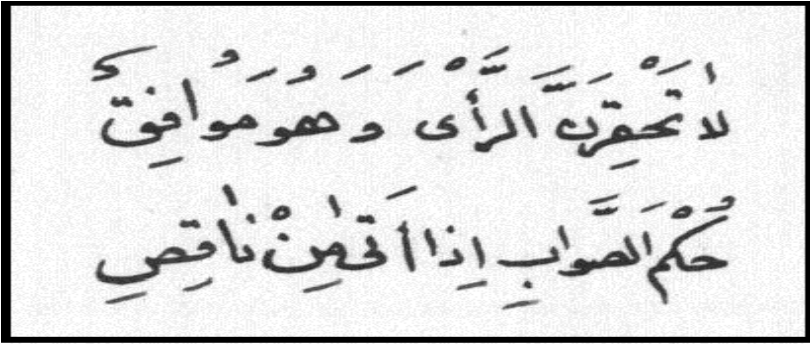 لَا تَحْقِرَنَّ الرَّأْىَ وَهُوَ مُوَافِقٌ
حُكْمَ الصَّوَابِ إِذَا أَتَى مِنْ نَاقِصِ